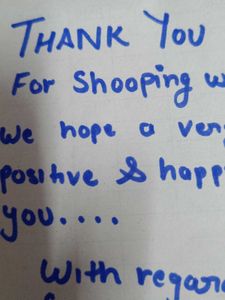 THANK YOU
For Shooping w
we hope a ver
positive & happ
you....
With regar